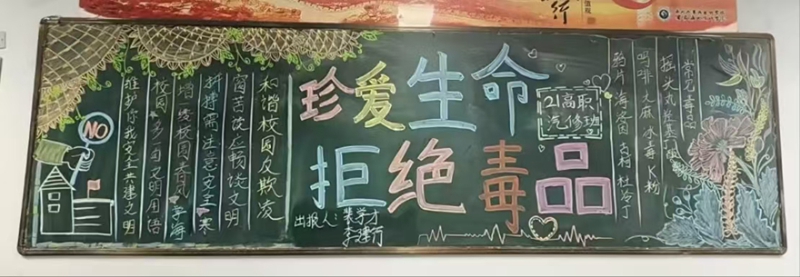 珍爱生命
拒绝毒品
21高职
汽修班
出报人:
和谐校园反欺凌
畅谈文明
拼搏需注意安全 寒
增一缕校园春风
校园多一句文明用语
维护你我安全共建文明
NO
常见毒品
摇头丸
吗啡 大麻 冰毒 K粉
药片 海洛因 古柯 杜冷丁